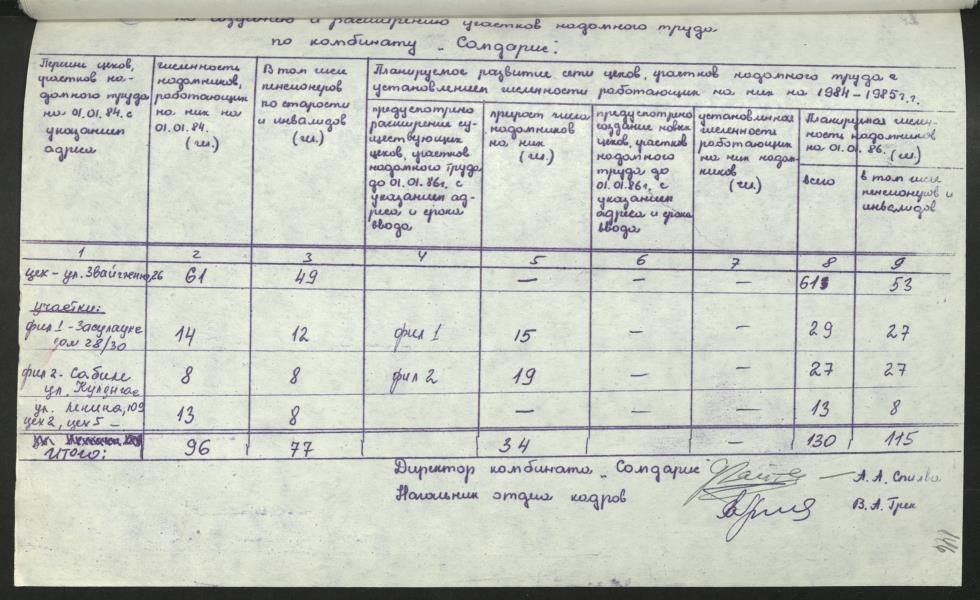 по созданию и расширению участков надомного труда
по комбинату „Солдарис".
Перечень цехов,
участков на-
домного труда
на 01.01.84. с
указанием
адреса
численность
надомников,
работающих
на них на
01.01.84.
(чел.)
В том числе
пенсионеров
по старости
и инвалидов
(чел.)
Планируемое развитие сети цехов, участков надомного труда с
установлением численности работающих на них на 1984-1985г.г.
предусмотрено
расширение су-
ществующих
цехов, участков
надомного труда
до 01.01.86г. с
указанием ад-
реса и срока
ввода
прирост числа
надомников
на них
(чел.)
предусмотрено
создание новых
цехов, участков
надомного
труда до
01.01.86г. с
указанием
адреса и срока
ввода
установленная
численность
работающих
на них надом-
ников
(чел.)
Планируемая числен-
ность надомников
на 01.01.86. (чел.)
всего
в том числе
пенсионеров и
инвалидов
1 2 3 4 5 6 7 8 9
цех - ул. Звайгжню, 26 61 49 — — — 61 53
участки:
фил 1 - Засулаукс 14 12 фил 1 15 — — 29 27
дом 28/30
фил 2 - Сабиле 8 8 фил 2 19 — — 27 27
ул.
ул. Ленина, 109 13 8 — — — 13 8
цех 2, цех 5 —
ИТОГО: 96 77 34 — 130 115
Директор комбината „Солдарис"
А. А.
Начальник отдела кадров
В. А. Грек
146